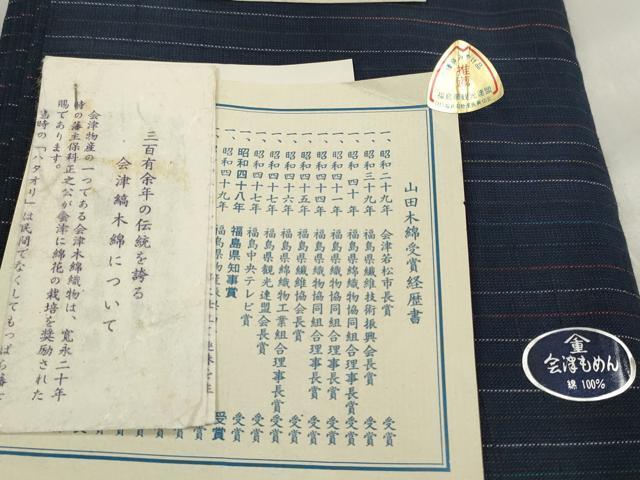 三百有余年の伝統を誇る
会津縞木綿について
会津物産の一つである会津木綿織物は、寛永二十年
時の藩主保科正之公が会津に綿花の栽培を奨励された
賜であります。
当時の「ハタオリ」は民間でなくしてもっぱら藩士
山田木綿受賞経歴書
一、昭和二十九年 会津若松市長賞 受賞
一、昭和三十九年 福島県繊維技術振興会長賞 受賞
一、昭和四十年 福島県綿織物協同組合理事長賞 受賞
一、昭和四十一年 福島県織物協同組合理事長賞 受賞
一、昭和四十五年 福島県繊維協会長賞 受賞
一、昭和四十六年 福島県綿織物工業組合理事長賞 受賞
一、昭和四十七年 福島県観光連盟会長賞 受賞
一、昭和四十七年 福島中央テレビ賞 受賞
一、昭和四十八年 福島県知事賞 受賞
一、昭和四十九年 福島県物産
推奨
福島県観光連盟
重
会津もめん
綿 100%